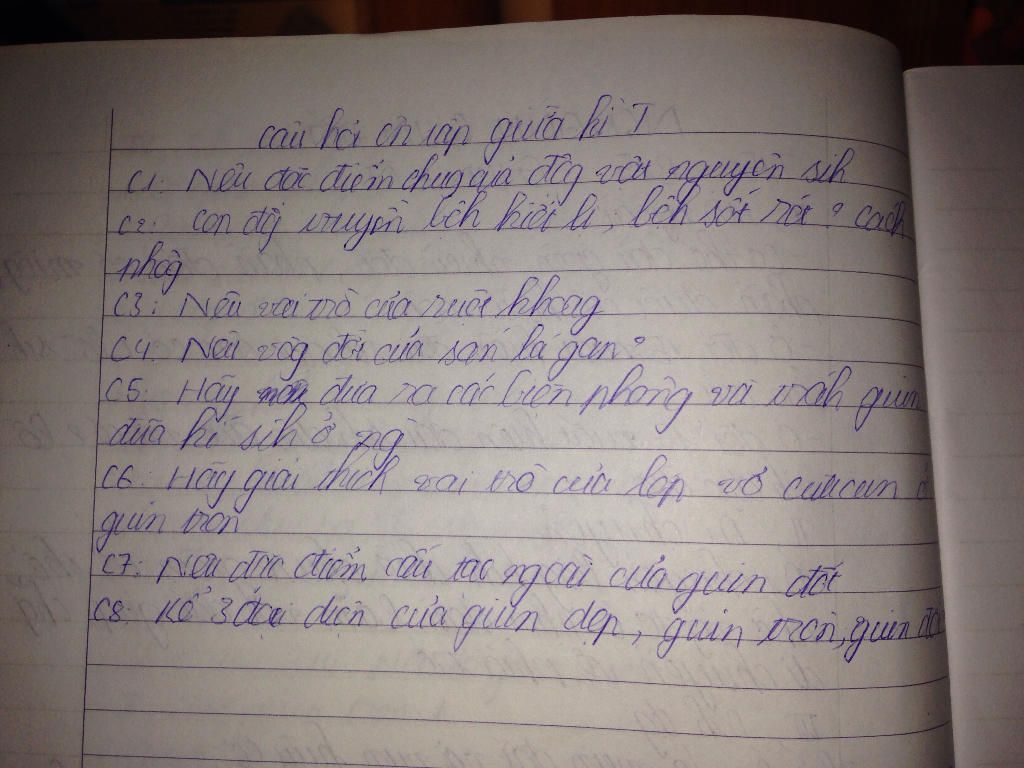 câu hỏi ôn tập giữa kì I
C1: Nêu đặc điểm chug của độg vật nguyên sih
C2: Con đg truyền bệh kiết lị, bệh sốt rét? cách
phòg
C3: Nêu vai trò của ruột khoag
C4: Nêu vòg đời của sán lá gan?
C5: Hãy đưa ra các biện phòng và tráh giun
đũa kí sih ở ng
C6: Hãy giải thích vai trò của lớp vỏ cuticun ở
giun tròn
C7: Nêu đặc điểm cấu tạo ngoài của giun đất
C8: Kể 3 đại diện của giun dẹp, giun tròn, giun đốt